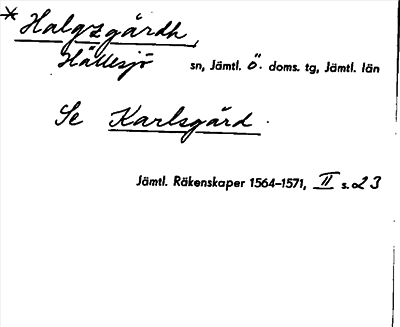 * Halgzgårdh,
Hällesjö sn, Jämtl. Ö. doms. tg, Jämtl. län
Se Karlsgård.
Jämtl. Räkenskaper 1564–1571, II s. 23